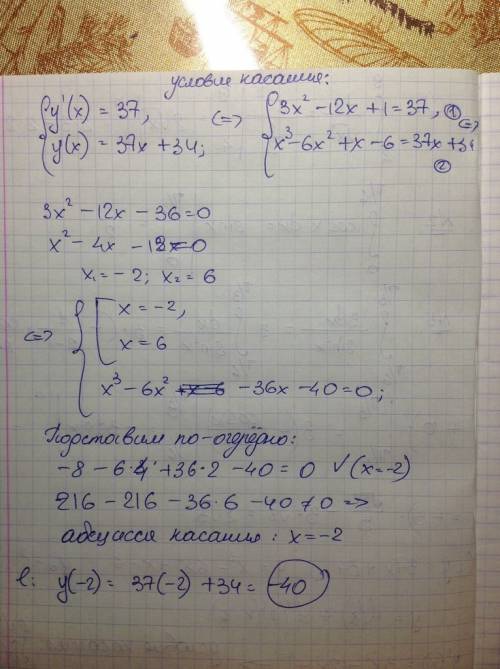 условие касания:
{ y'(x) = 37, <=> { 3x² - 12x + 1 = 37, ① <=>
{ y(x) = 37x + 34; { x³ - 6x² + x - 6 = 37x + 34 ②
3x² - 12x - 36 = 0
x² - 4x - 12 = 0
x₁ = -2; x₂ = 6
<=> { [ x = -2,
x = 6
x³ - 6x² - 36x - 40 = 0;
Подставим по-очерёдно:
-8 - 6·4 + 36·2 - 40 = 0 √ (x = -2)
216 - 216 - 36·6 - 40 ≠ 0 =>
абсцисса касания: x = -2
l: y(-2) = 37(-2) + 34 = -40